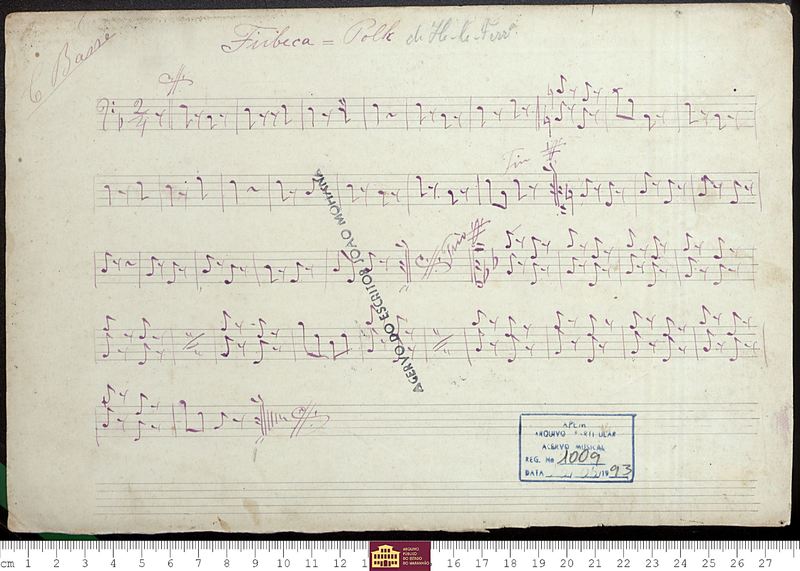 6 Basse
Fubeca = Polk
Fin
Trio
ACERVO DO ESCRITOR JOÃO MOHANA
APEM
ARQUIVO PARTICULAR
ACERVO MUSICAL
REG. Nº 1009
DATA 05/1993
cm 1 2 3 4 5 6 7 8 9 10 11 12 13 16 17 18 19 20 21 22 23 24 25 26 27
ARQUIVO
PÚBLICO
DO ESTADO
DO MARANHÃO